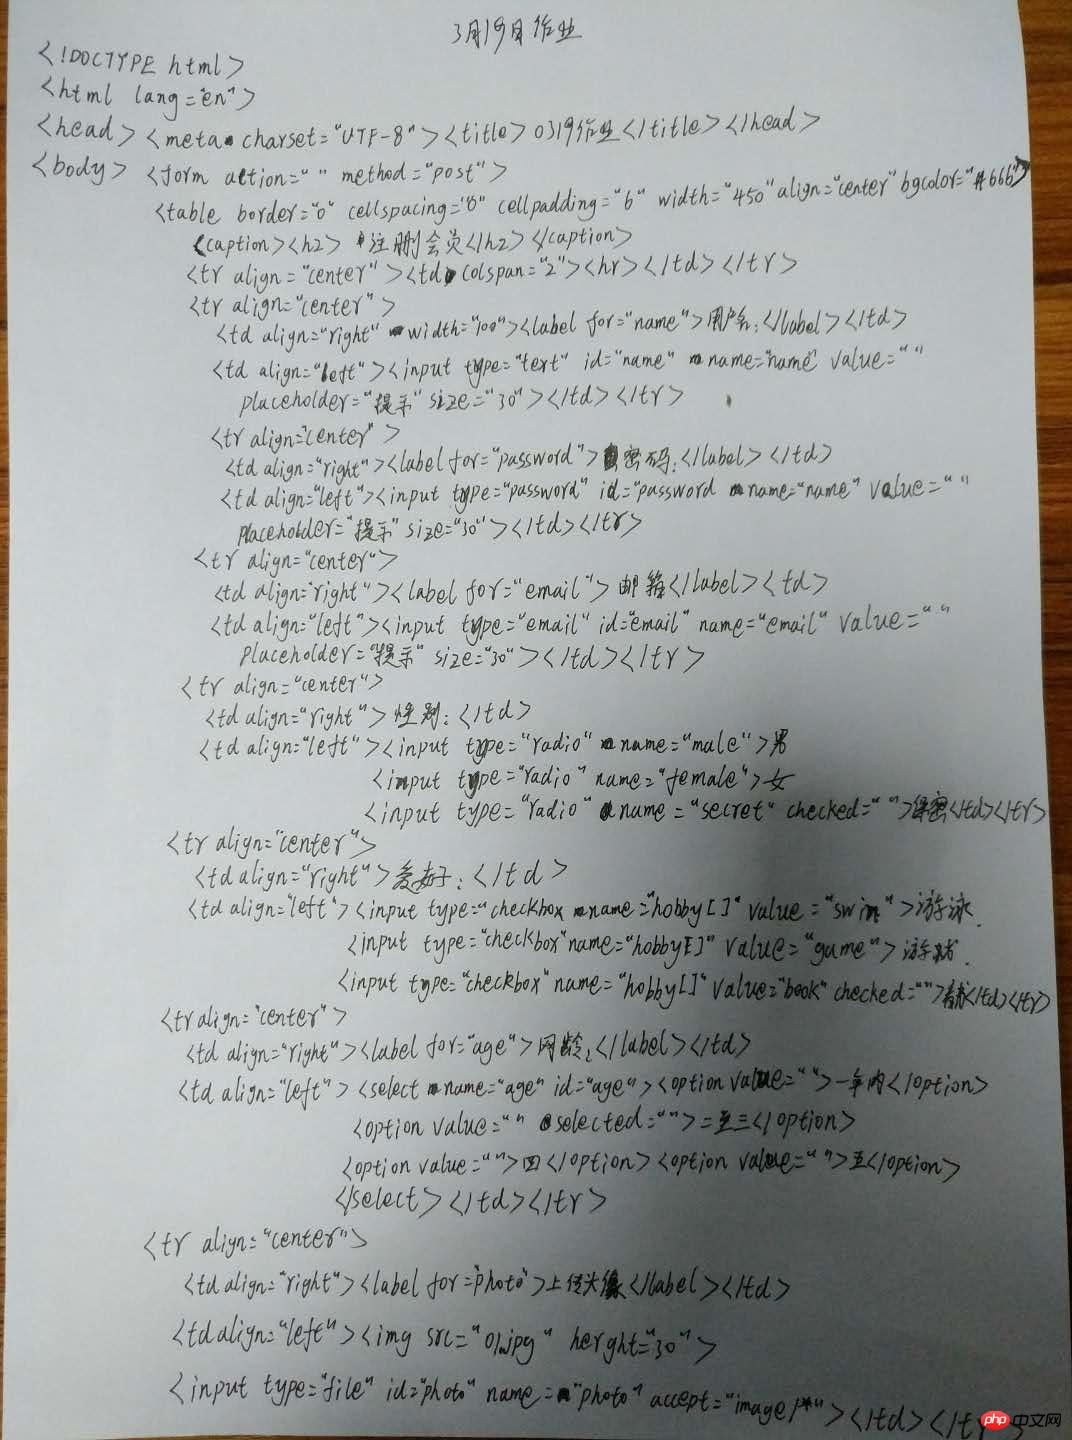 3月19日作业
<!DOCTYPE html>
<html lang="en">
<head> <meta charset="UTF-8"><title>0319作业</title></head>
<body> <form action=" " method="post">
<table border="0" cellspacing="0" cellpadding="6" width="450" align="center" bgcolor="#666">
<caption><h2>注删会员</h2></caption>
<tr align="center"><td colspan="2"><hr></td></tr>
<tr align="center">
<td align="right" width="100"><label for="name">用户名:</label></td>
<td align="left"><input type="text" id="name" name="name" value=" "
placeholder="提示" size="30"></td></tr>
<tr align="center">
<td align="right"><label for="password">密码:</label></td>
<td align="left"><input type="password" id="password name="name" value=" "
placeholder="提示" size="30"></td></tr>
<tr align="center">
<td align="right"><label for="email">邮箱</label><td>
<td align="left"><input type="email" id="email" name="email" value=" "
placeholder="提示" size="30"></td></tr>
<tr align="center">
<td align="right">性别:</td>
<td align="left"><input type="radio" name="male">男
<input type="radio" name="female">女
<input type="radio" name="secret" checked=" ">保密</td></tr>
<tr align="center">
<td align="right">爱好:</td>
<td align="left"><input type="checkbox name="hobby[]" value="swim">游泳
<input type="checkbox" name="hobby[]" value="game">游戏
<input type="checkbox" name="hobby[]" value="book" checked=""></td></tr>
<tr align="center">
<td align="right"><label for="age">网龄:</label></td>
<td align="left"><select name="age" id="age"><option value=" ">一年内</option>
<option value=" " selected=" ">二至三</option>
<option value=" ">四</option><option value=" ">五</option>
</select></td></tr>
<tr align="center">
<td align="right"><label for="photo">上传头像</label></td>
<td align="left"><img src="01.jpg" herght="30">
<input type="file" id="photo" name="photo" accept="image/*"></td></tr>
php中文网